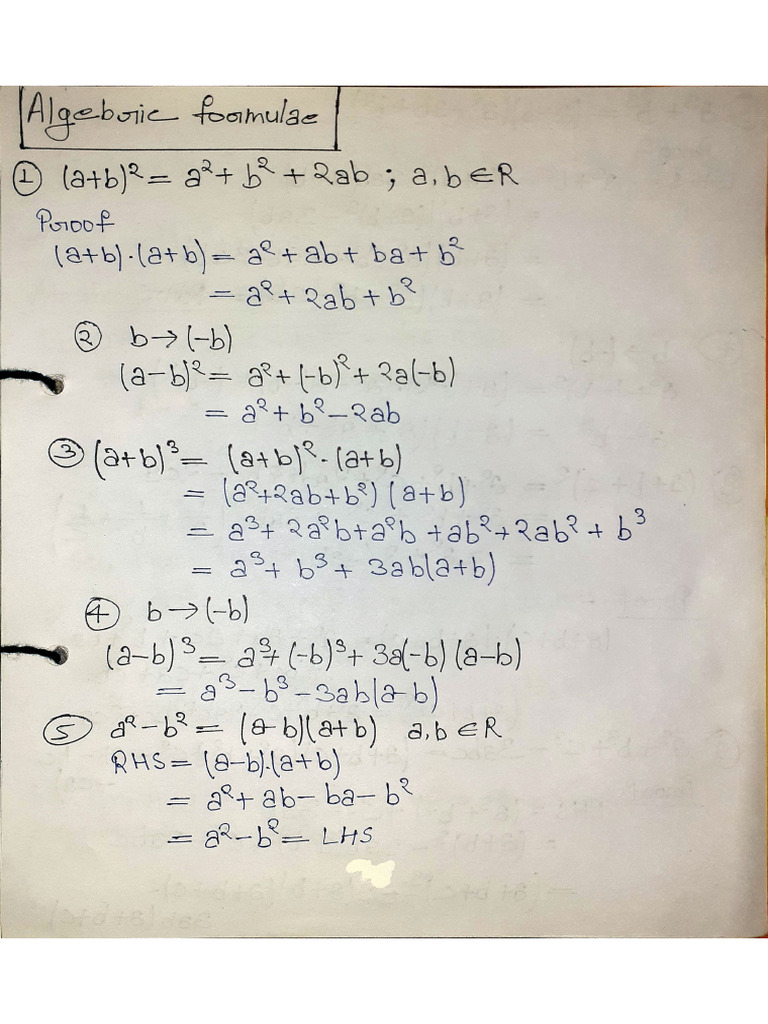 Algebric formulae
① (a+b)² = a² + b² + 2ab ; a, b ∈ R
Proof
(a+b)·(a+b) = a² + ab + ba + b²
= a² + 2ab + b²
② b → (-b)
(a-b)² = a² + (-b)² + 2a(-b)
= a² + b² - 2ab
③ (a+b)³ = (a+b)²·(a+b)
= (a²+2ab+b²) (a+b)
= a³ + 2a²b + a²b + ab² + 2ab² + b³
= a³ + b³ + 3ab(a+b)
④ b → (-b)
(a-b)³ = a³ + (-b)³ + 3a(-b) (a-b)
= a³ - b³ - 3ab(a-b)
⑤ a² - b² = (a-b)(a+b) a, b ∈ R
RHS = (a-b)·(a+b)
= a² + ab - ba - b²
= a² - b² = LHS